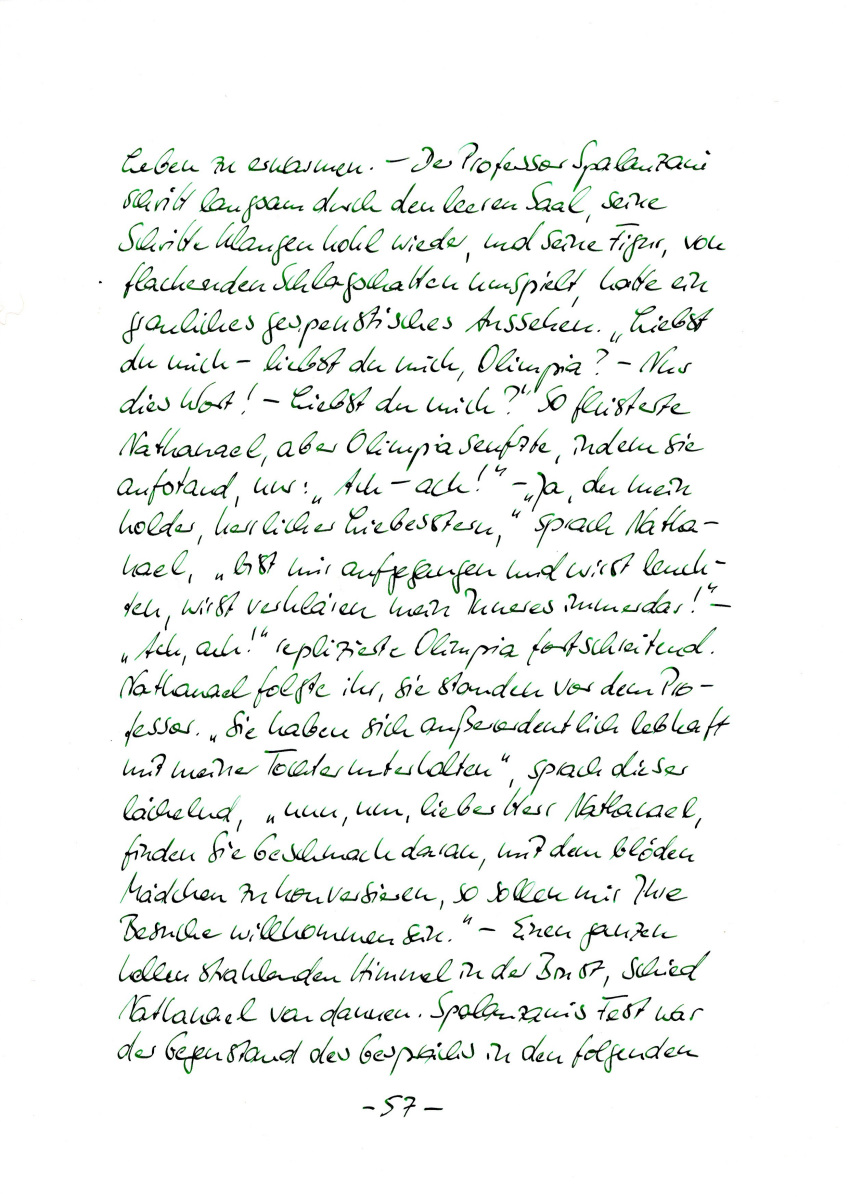 Leben zu erwarmen. – Der Professor Spalanzani
schritt langsam durch den leeren Saal, seine
Schritte klangen hohl wieder, und seine Figur, von
flackernden Schlagschatten umspielt, hatte ein
grauliches gespenstisches Aussehen. „Liebst
du mich – liebst du mich, Olimpia? – Nur
dies Wort! – Liebst du mich?" So flüsterte
Nathanael, aber Olimpia seufzte, indem sie
aufstand, nur: „Ach – ach!" – „Ja, du mein
holder, herrlicher Liebesstern," sprach Natha–
nael, „bist mir aufgegangen und wirst leuch–
ten, wirst verklären mein Inneres immerdar!" –
„Ach, ach!" replizierte Olimpia fortschreitend.
Nathanael folgte ihr, sie standen vor dem Pro–
fessor. „Sie haben sich außerordentlich lebhaft
mit meiner Tochter unterhalten", sprach dieser
lächelnd, „nun, nun, lieber Herr Nathanael,
finden Sie Geschmack daran, mit dem blöden
Mädchen zu konversieren, so sollen mir Ihre
Besuche willkommen sein." – Einen ganzen
hellen strahlenden Himmel in der Brust, schied
Nathanael von dannen. Spalanzanis Fest war
der Gegenstand des Gesprächs in den folgenden
– 57 –